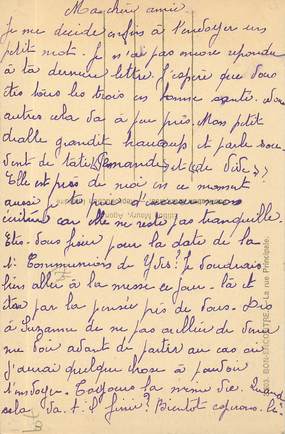 Ma chère amie
Je me décide enfin à t'envoyer un
petit mot. Je n'ai pas encore répondu
à ta dernière lettre. J'espère que vous
êtes tous les trois en bonne santé. Nous
autres cela va à peu près. Mon petit
diable grandit beaucoup et parle sou-
vent de tata (Fernande) et (de Dédé).
Elle est près de moi en ce moment
aussi je
écriture car elle ne reste pas tranquille.
Etes-vous fixer pour la date de la
1e Communion de Yves? Je voudrais
bien aller à la messe ce jour-là et
être par la pensée près de vous. Dis
à Suzanne de ne pas oublier de venir
me voir avant de partir au cas où
j'aurai quelque chose à pouvoir
t'envoyer. Toujours la même vie. Quand
cela va-t-il finir? Bientôt espérons-le.
La rue Principale.